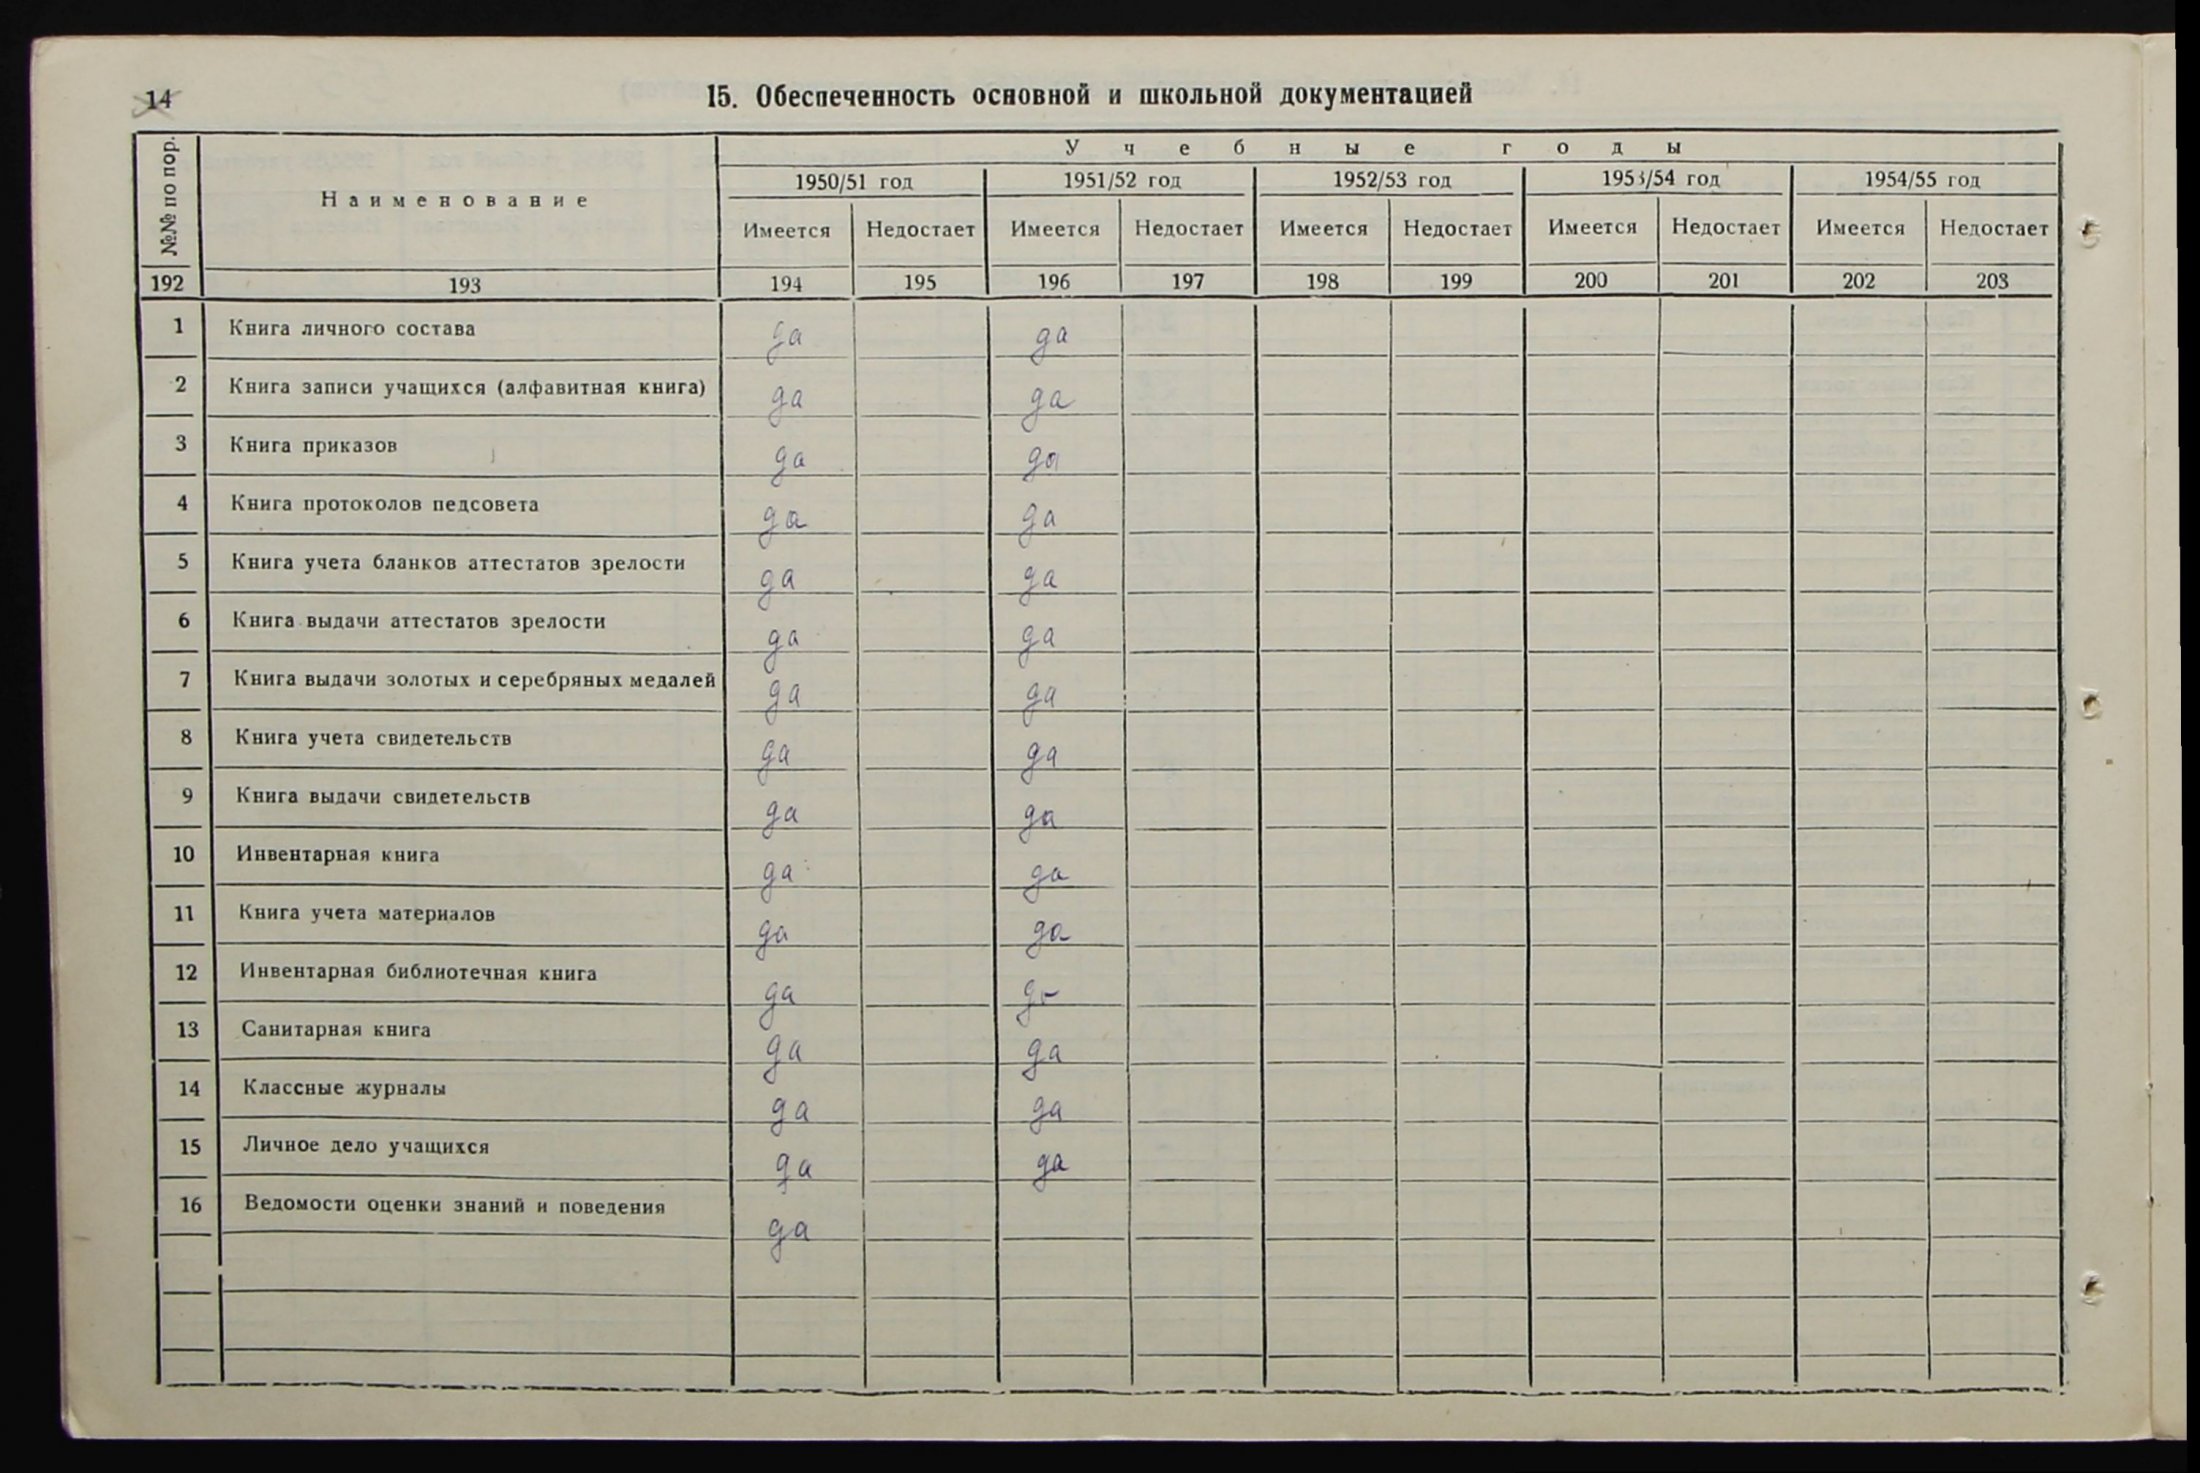 14
15. Обеспеченность основной и школьной документацией
№№ по пор.
Наименование
Учебные годы
1950/51 год 1951/52 год 1952/53 год 1953/54 год 1954/55 год
Имеется Недостает Имеется Недостает Имеется Недостает Имеется Недостает Имеется Недостает
192 193 194 195 196 197 198 199 200 201 202 203
1 Книга личного состава да да
2 Книга записи учащихся (алфавитная книга) да да
3 Книга приказов да да
4 Книга протоколов педсовета да да
5 Книга учета бланков аттестатов зрелости да да
6 Книга выдачи аттестатов зрелости да да
7 Книга выдачи золотых и серебряных медалей да да
8 Книга учета свидетельств да да
9 Книга выдачи свидетельств да да
10 Инвентарная книга да да
11 Книга учета материалов да да
12 Инвентарная библиотечная книга да да
13 Санитарная книга да да
14 Классные журналы да да
15 Личное дело учащихся да да
16 Ведомости оценки знаний и поведения да